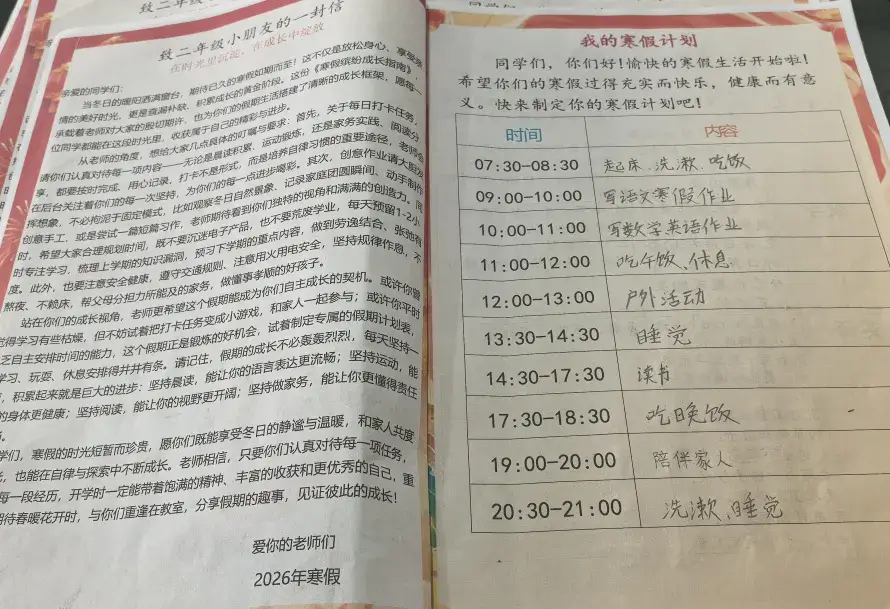 致二年级小朋友的一封信
在时光里沉淀，在成长中绽放
亲爱的同学们：
当冬日的暖阳洒满窗台，期待已久的寒假如期而至！这不仅是放松身心、享受亲
情的美好时光，更是查漏补缺、积累成长的黄金阶段。这份《寒假缤纷成长指南》，
承载着老师对大家的殷切期许，也为你们的假期生活搭建了清晰的成长框架，愿每一
位同学都能在这段时光里，收获属于自己的精彩与进步。
从老师的角度，想给大家几点具体的叮嘱与要求：首先，关于每日打卡任务，
请你们认真对待每一项内容——无论是晨读积累、运动锻炼，还是家务实践、阅读分
享，都要按时完成、用心记录，打卡不是形式，而是培养自律习惯的重要途径，老师会
在后台关注着你们的每一次坚持，为你们的每一点进步喝彩。其次，创意作业请大胆发
挥想象，不必拘泥于固定模式，比如观察冬日自然景象、记录家庭团圆瞬间、动手制作
创意手工，或是尝试一篇短篇习作，老师期待看到你们独特的视角和满满的创造力。同
时，希望大家合理规划时间，既不要沉迷电子产品，也不要荒废学业，每天预留1-2小
时专注学习，梳理上学期的知识漏洞，预习下学期的重点内容，做到劳逸结合、张弛有
度。此外，也要注意安全健康，遵守交通规则、注意用火用电安全，坚持规律作息，不
熬夜、不赖床，帮父母分担力所能及的家务，做懂事孝顺的好孩子。
站在你们的成长视角，老师更希望这个假期能成为你们自主成长的契机。或许你曾
觉得学习有些枯燥，但不妨试着把打卡任务变成小游戏，和家人一起参与；或许你平时
乏自主安排时间的能力，这个假期正是锻炼的好机会，试着制定专属的假期计划表，
学习、玩耍、休息安排得井井有条。请记住，假期的成长不必轰轰烈烈，每天坚持一
，积累起来就是巨大的进步：坚持晨读，能让你的语言表达更流畅；坚持运动，能
的身体更健康；坚持阅读，能让你的视野更开阔；坚持做家务，能让你更懂得责任
学们，寒假的时光短暂而珍贵，愿你们既能享受冬日的静谧与温暖，和家人共度
，也能在自律与探索中不断成长。老师相信，只要你们认真对待每一项任务，
每一段经历，开学时一定能带着饱满的精神、丰富的收获和更优秀的自己，重
期待春暖花开时，与你们重逢在教室，分享假期的趣事，见证彼此的成长！
爱你的老师们
2026年寒假
我的寒假计划
同学们，你们好！愉快的寒假生活开始啦！
希望你们的寒假过得充实而快乐，健康而有意
义。快来制定你的寒假计划吧！
时间 内容
07:30-08:30 起床、洗漱、吃饭
09:00-10:00 写语文寒假作业
10:00-11:00 写数学英语作业
11:00-12:00 吃午饭、休息
12:00-13:00 户外活动
13:30-14:30 睡觉
14:30-17:30 读书
17:30-18:30 吃晚饭
19:00-20:00 陪伴家人
20:30-21:00 洗漱、睡觉